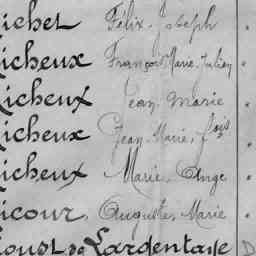 Richel Félix Joseph
Richeux François Marie Julien
Richeux Jean Marie
Richeux Jean Marie, flois
Richeux Marie Ange
Ricour Auguste Marie
de Largentaye D